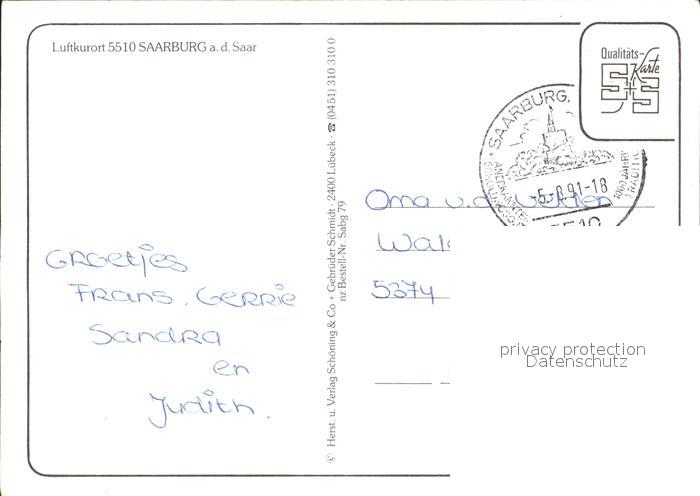 Luftkurort 5510 SAARBURG a. d. Saar
Qualitäts-
Karte
S+S
SAARBURG,
-5.-8.91-18
5510
1000 JAHRE
TRADITION
Groetjes
Frans, Gerrie
Sandra
en
Judith.
© Herst. u. Verlag Schöning & Co + Gebrüder Schmidt · 2400 Lübeck · ☎ (0451) 310 310 0
nz Bestell-Nr. Sabg 79
Oma v.d.
5374
privacy protection
Datenschutz